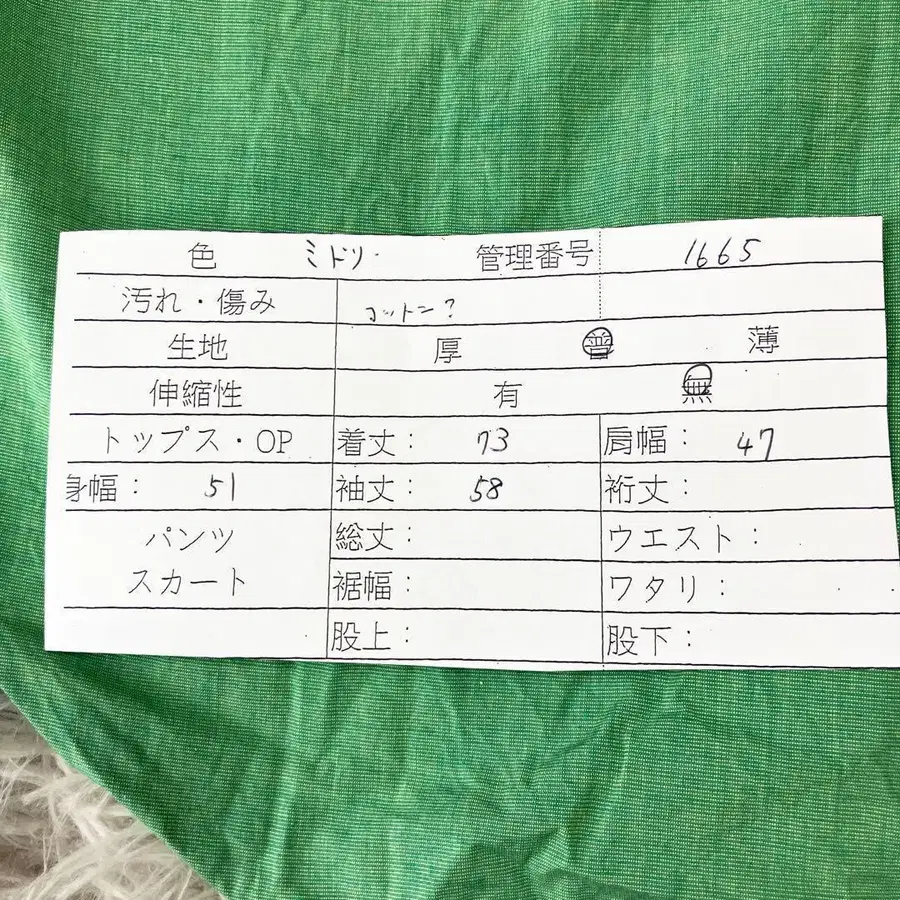 色 ミドリ 管理番号 1665
汚れ・傷み コットン?
生地 厚 普 薄
伸縮性 有 無
トップス・OP 着丈: 73 肩幅: 47
身幅: 51 袖丈: 58 裄丈:
パンツ 総丈: ウエスト:
スカート 裾幅: ワタリ:
股上: 股下: